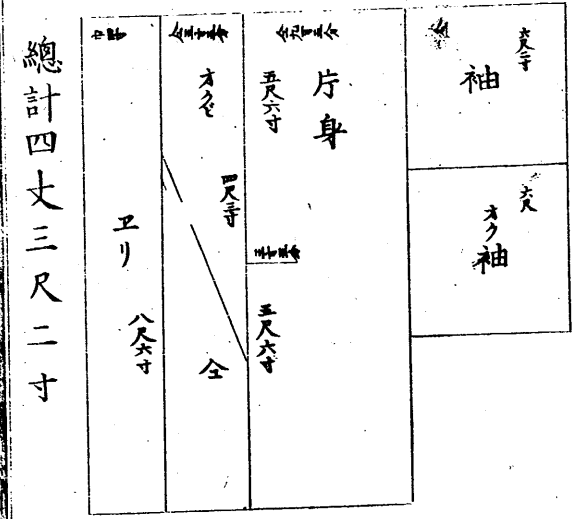 六尺二寸
袖
六尺
オク袖
片身
五尺六寸
五尺六寸
オクビ
四尺三寸
仝
ヱリ
八尺六寸
總計四丈三尺二寸